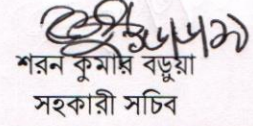 শরন কুমার বড়ুয়া
সহকারী সচিব